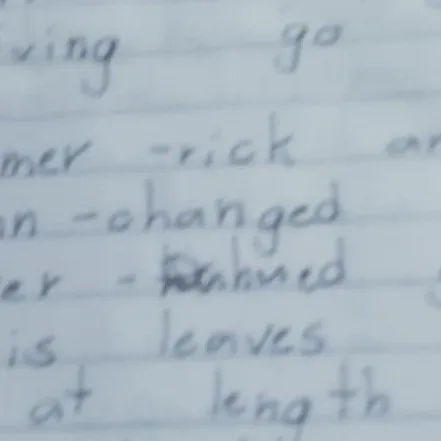 ving go
mer -rick ar
n -changed
er -
is leaves
at length